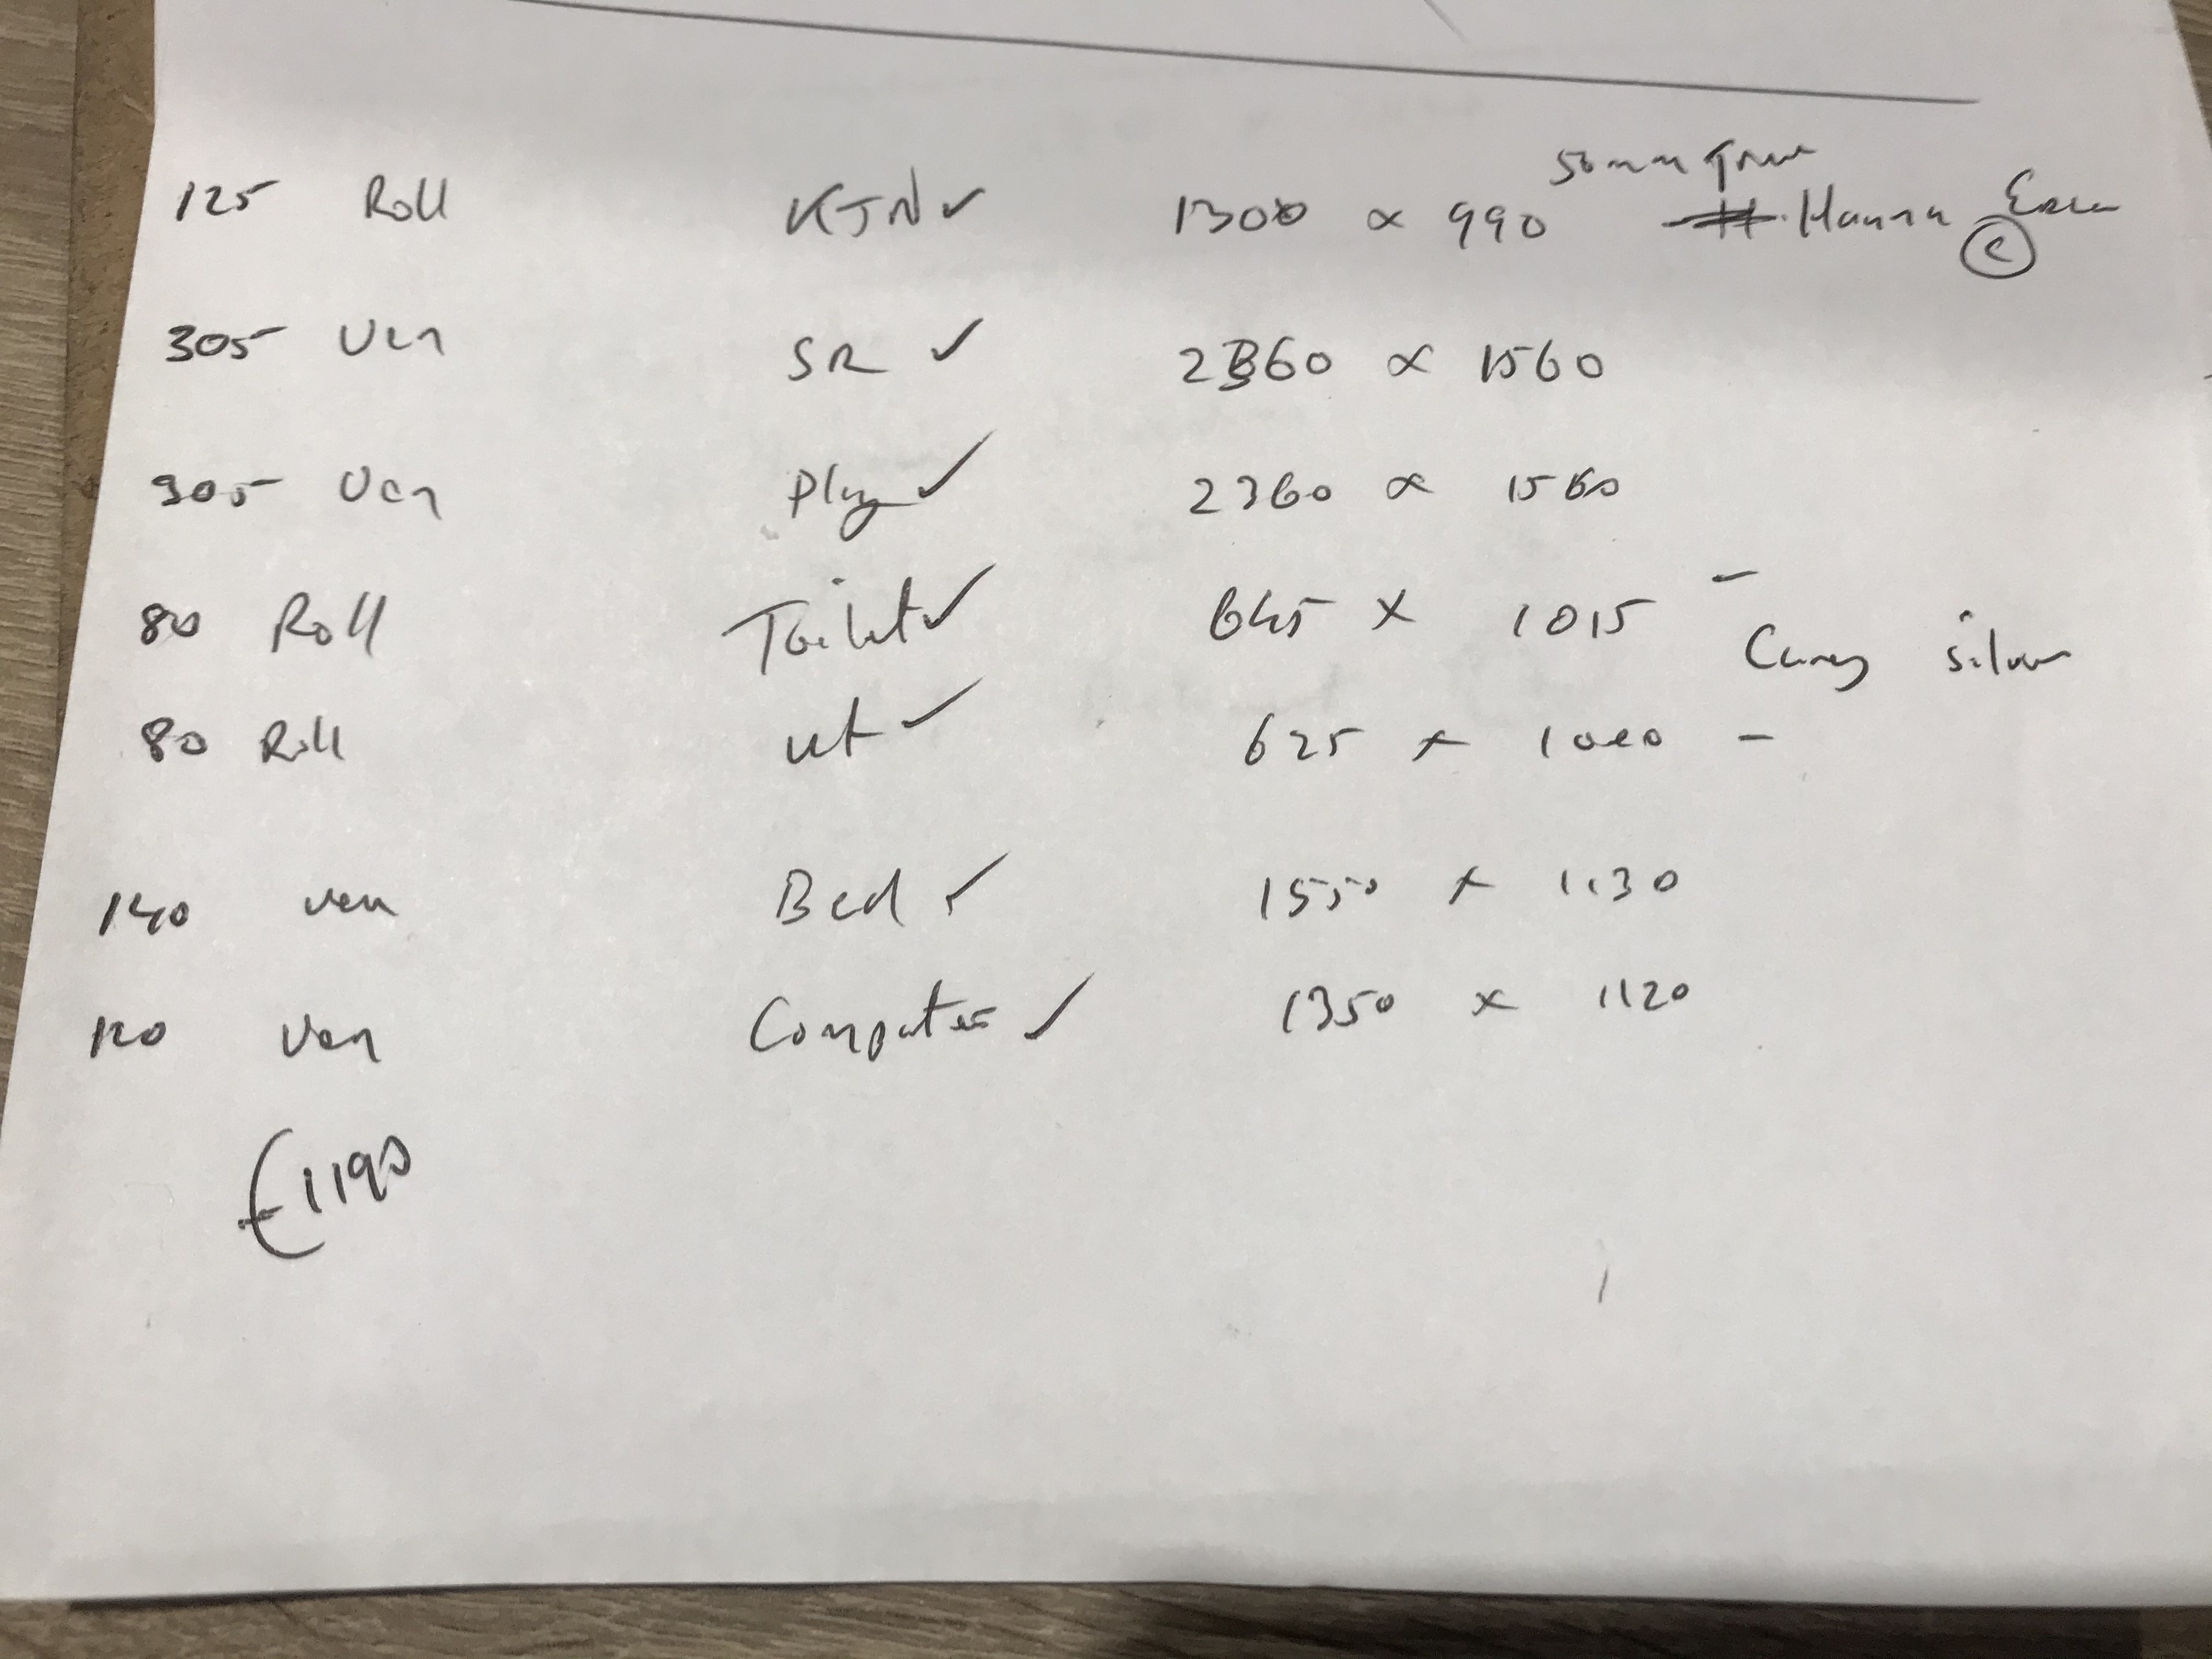 50mm
125 Roll KTN ✓ 1300 x 990 Hanna ©
305 Ven SR ✓ 2360 x 1560
305 Ven Play ✓ 2360 x 1560
80 Roll Toilet ✓ 645 x 1015 –
silver
80 Roll ut ✓ 625 x 1000 –
140 ven Bed ✓ 1550 x 1130
120 Ven Computer ✓ 1350 x 1120
€1190